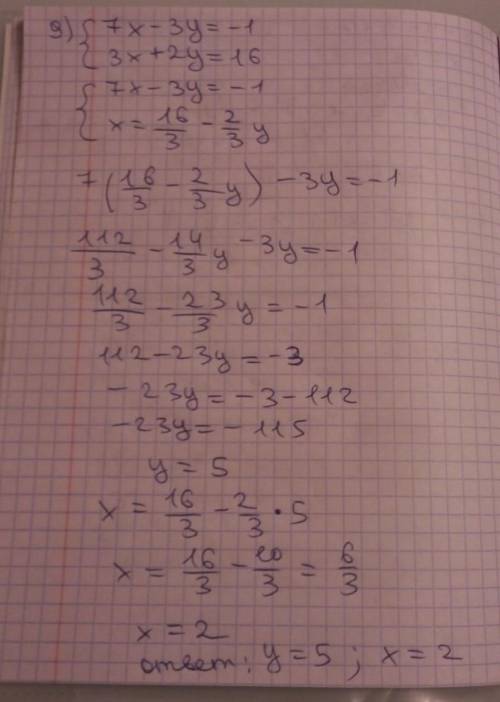 9) { 7x - 3y = -1
3x + 2y = 16
{ 7x - 3y = -1
x = 16/3 - 2/3 y
7 (16/3 - 2/3 y) - 3y = -1
112/3 - 14/3 y - 3y = -1
112/3 - 23/3 y = -1
112 - 23y = -3
- 23y = -3 - 112
- 23y = - 115
y = 5
x = 16/3 - 2/3 • 5
x = 16/3 - 10/3 = 6/3
x = 2
ответ: y = 5 ; x = 2